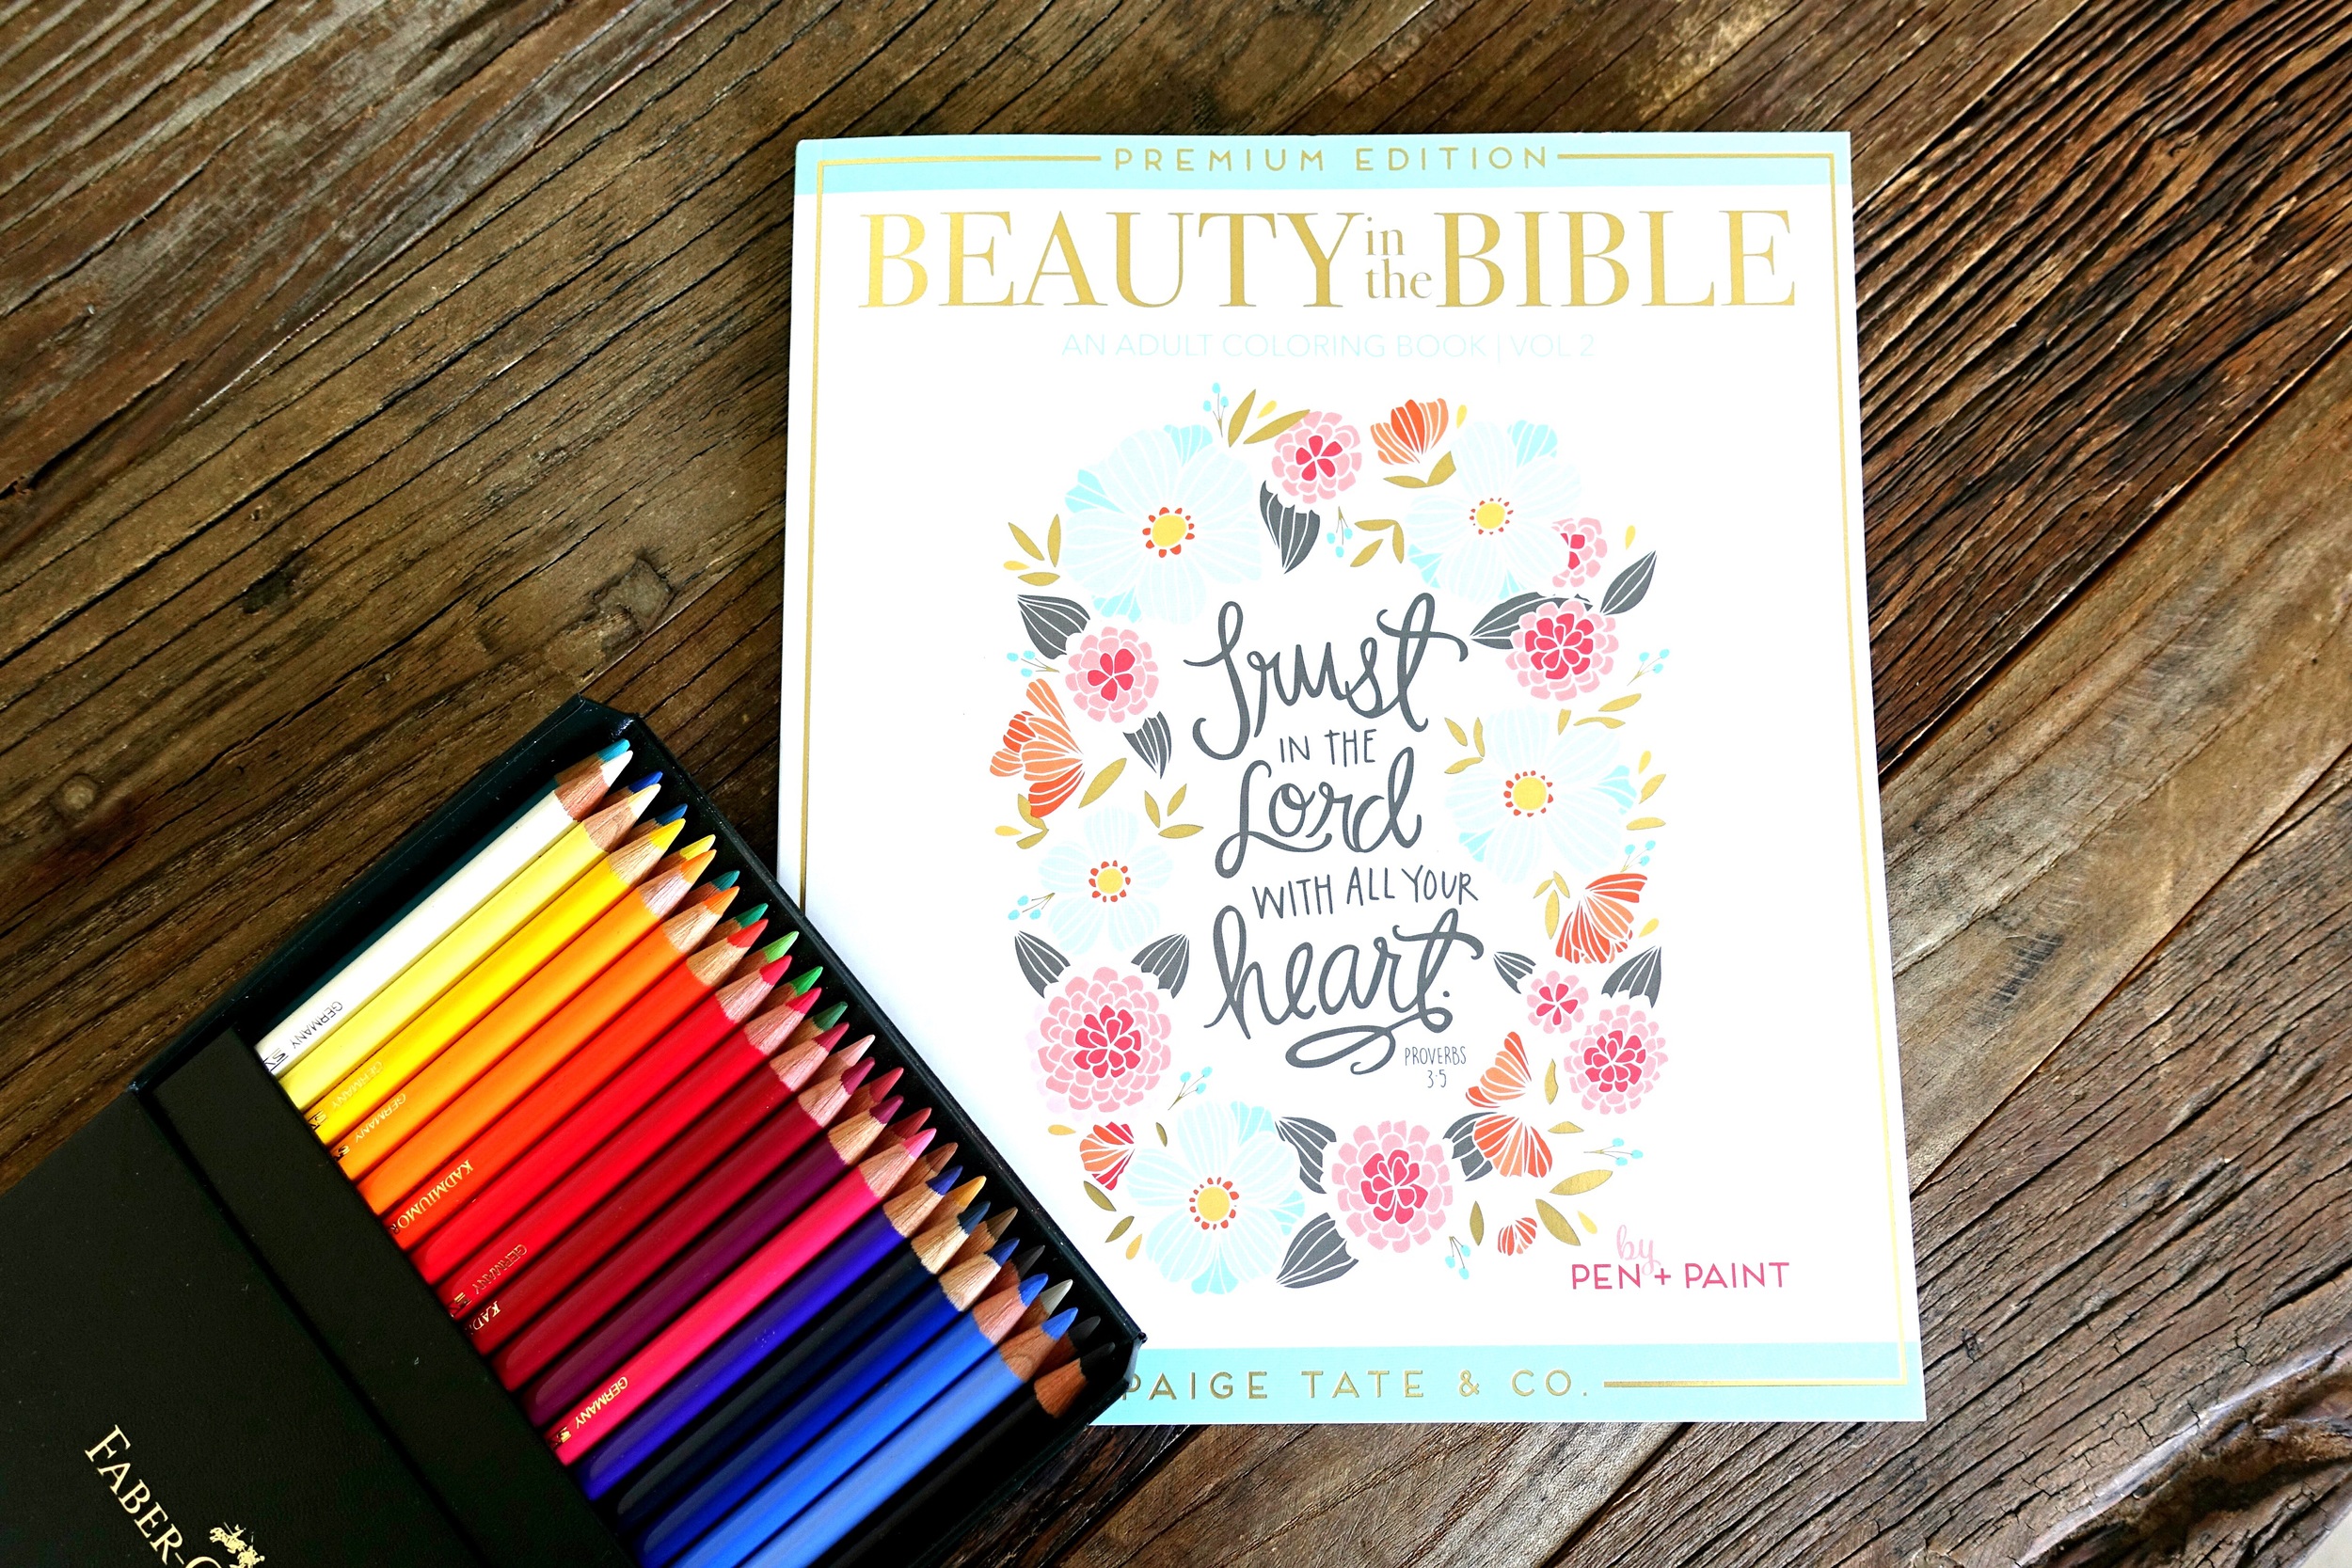 PREMIUM EDITION
BEAUTY in the BIBLE
AN ADULT COLORING BOOK | VOL 2
Trust
IN THE
Lord
WITH ALL YOUR
heart.
PROVERBS
3:5
by
PEN + PAINT
PAIGE TATE & CO.
GERMANY
GERMANY
GERMANY
KADMIUMO
GERMANY
KAD
GERMANY
FABER-C